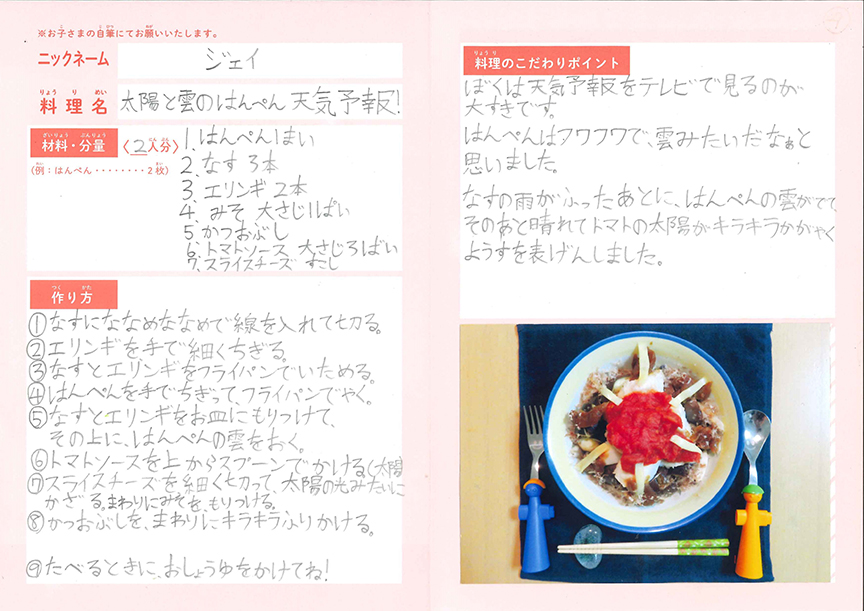 ※お子さまの自筆にてお願いいたします。
ニックネーム ジェイ
料理名 太陽と雲のはんぺん天気予報!
材料・分量 〈2人分〉
(例：はんぺん・・・・・・・・2枚)
1、はんぺん1まい
2、なす 3本
3、エリンギ 2本
4、みそ 大さじ1ぱい
5、かつおぶし
6、トマトソース 大さじ3ばい
7、スライスチーズ すこし
作り方
①なすにななめななめで線を入れて切る。
②エリンギを手で細くちぎる。
③なすとエリンギをフライパンでいためる。
④はんぺんを手でちぎって、フライパンでやく。
⑤なすとエリンギをお皿にもりつけて、
その上に、はんぺんの雲をおく。
⑥トマトソースを上からスプーンでかける(太陽)
⑦スライスチーズを細く切って、太陽の光みたいに
かざる。まわりにみそを、もりつける。
⑧かつおぶしを、まわりにキラキラふりかける。
⑨たべるときに、おしょうゆをかけてね!
料理のこだわりポイント
ぼくは天気予報をテレビで見るのが
大すきです。
はんぺんはフワフワで、雲みたいだなぁと
思いました。
なすの雨がふったあとに、はんぺんの雲がでて
そのあと晴れてトマトの太陽がキラキラかがやく
ようすを表げんしました。